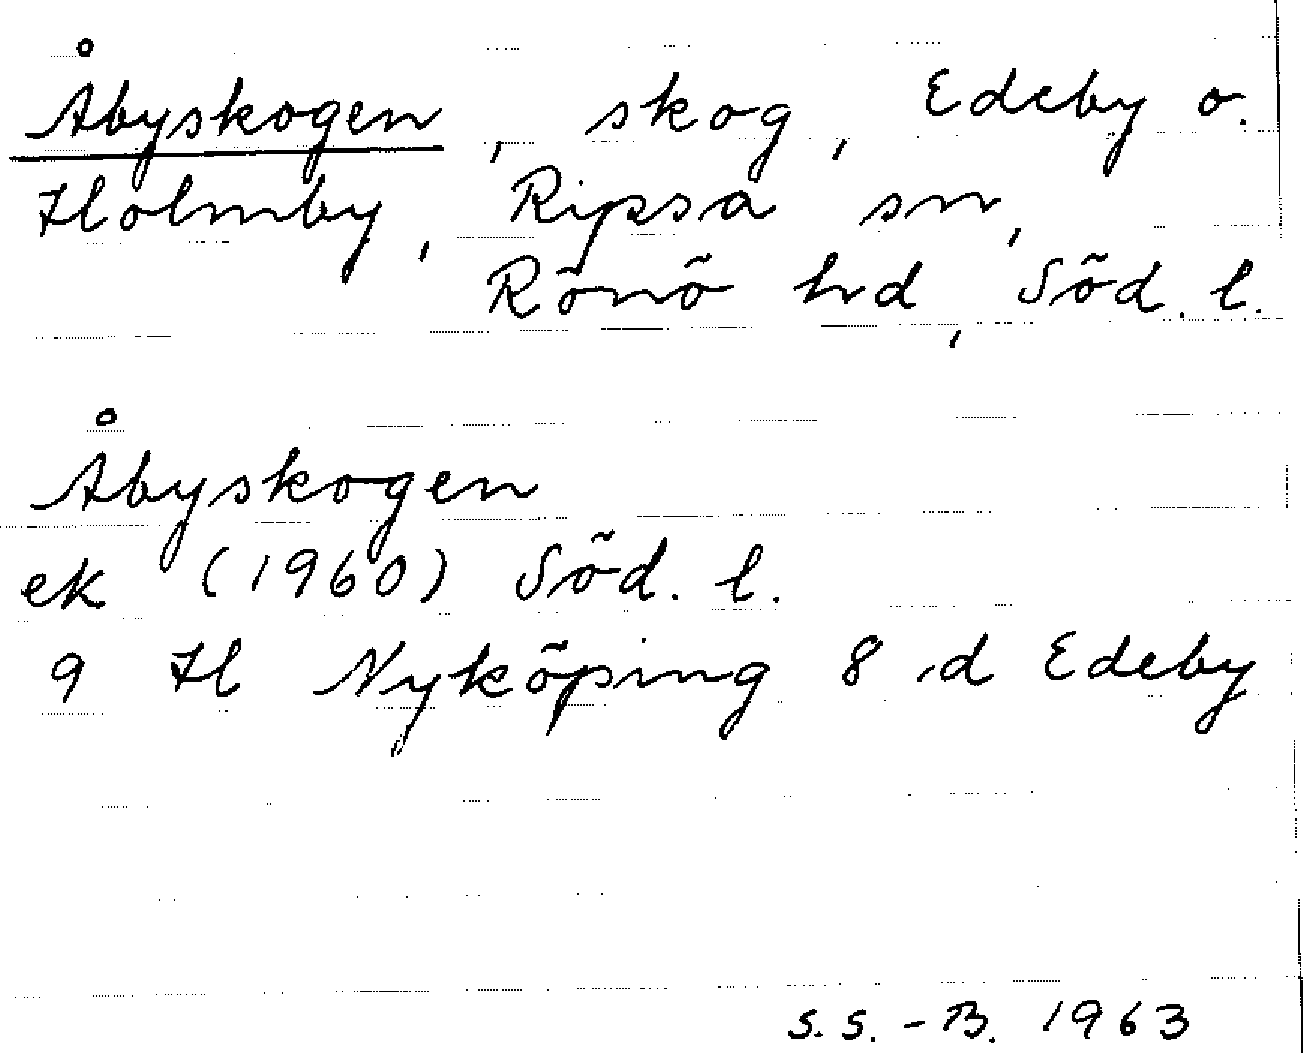 Åbyskogen, skog, Edeby o.
Holmby, Ripsa sn,
Rönö hd, Söd. l.
Åbyskogen
ek (1960) Söd. l.
9 H Nyköping 8 d Edeby
S.S.-B. 1963